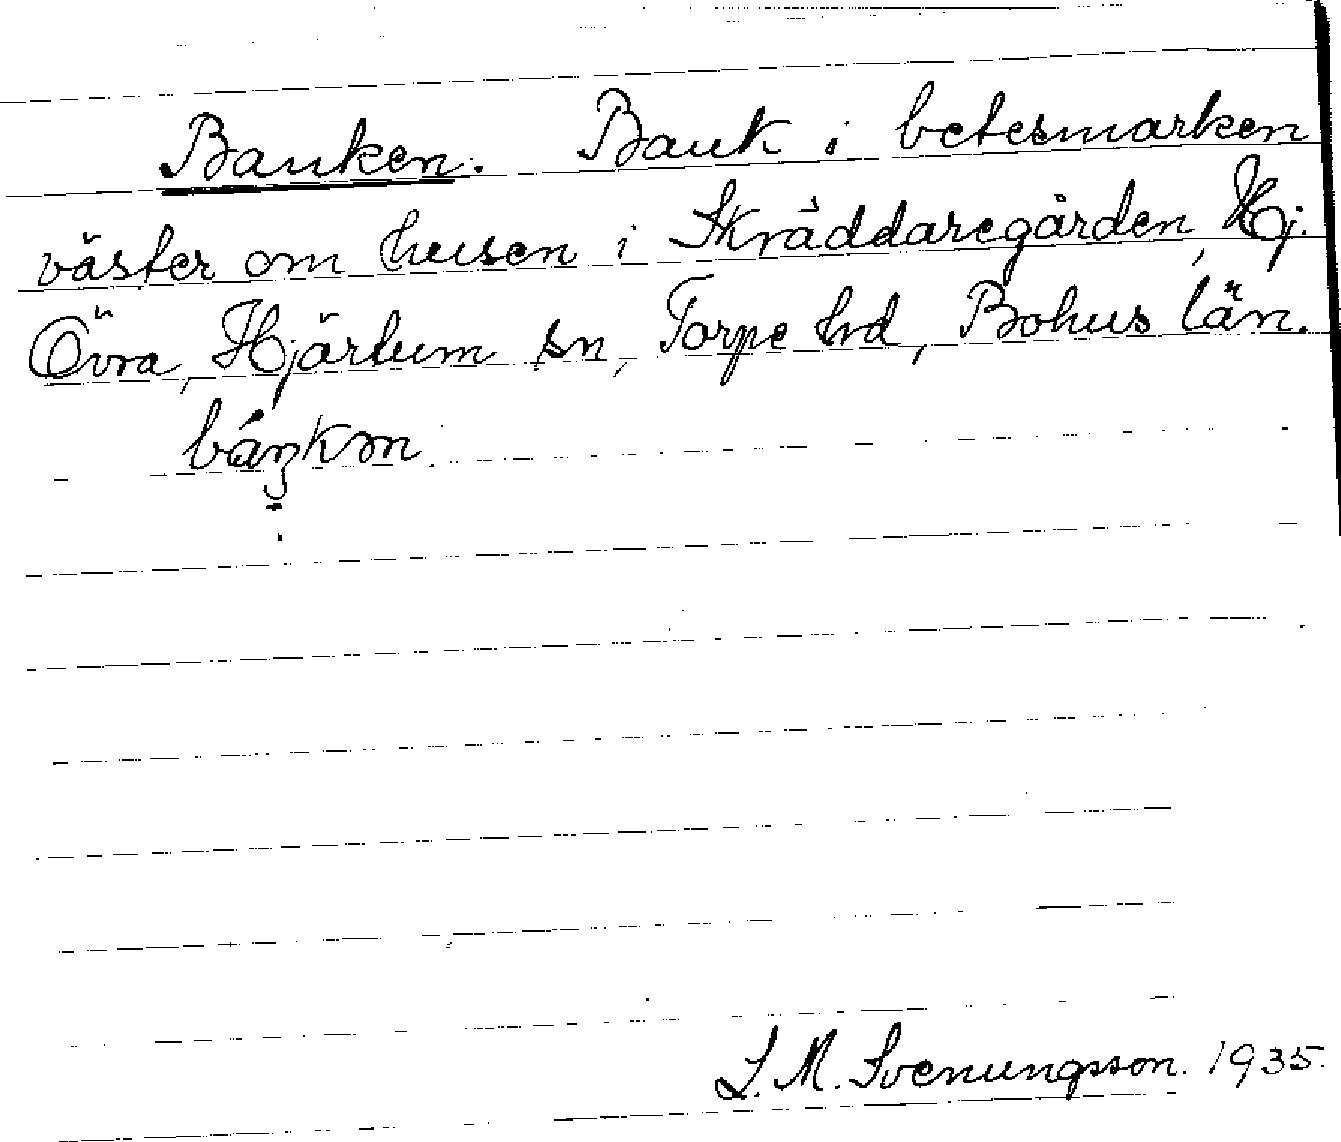 Banken. Bank i betesmarken
väster om husen i Skräddaregården, Hj.
Övra, Hjärtum sn, Torpe hrd, Bohus län.
S. M. Svenungsson. 1935.